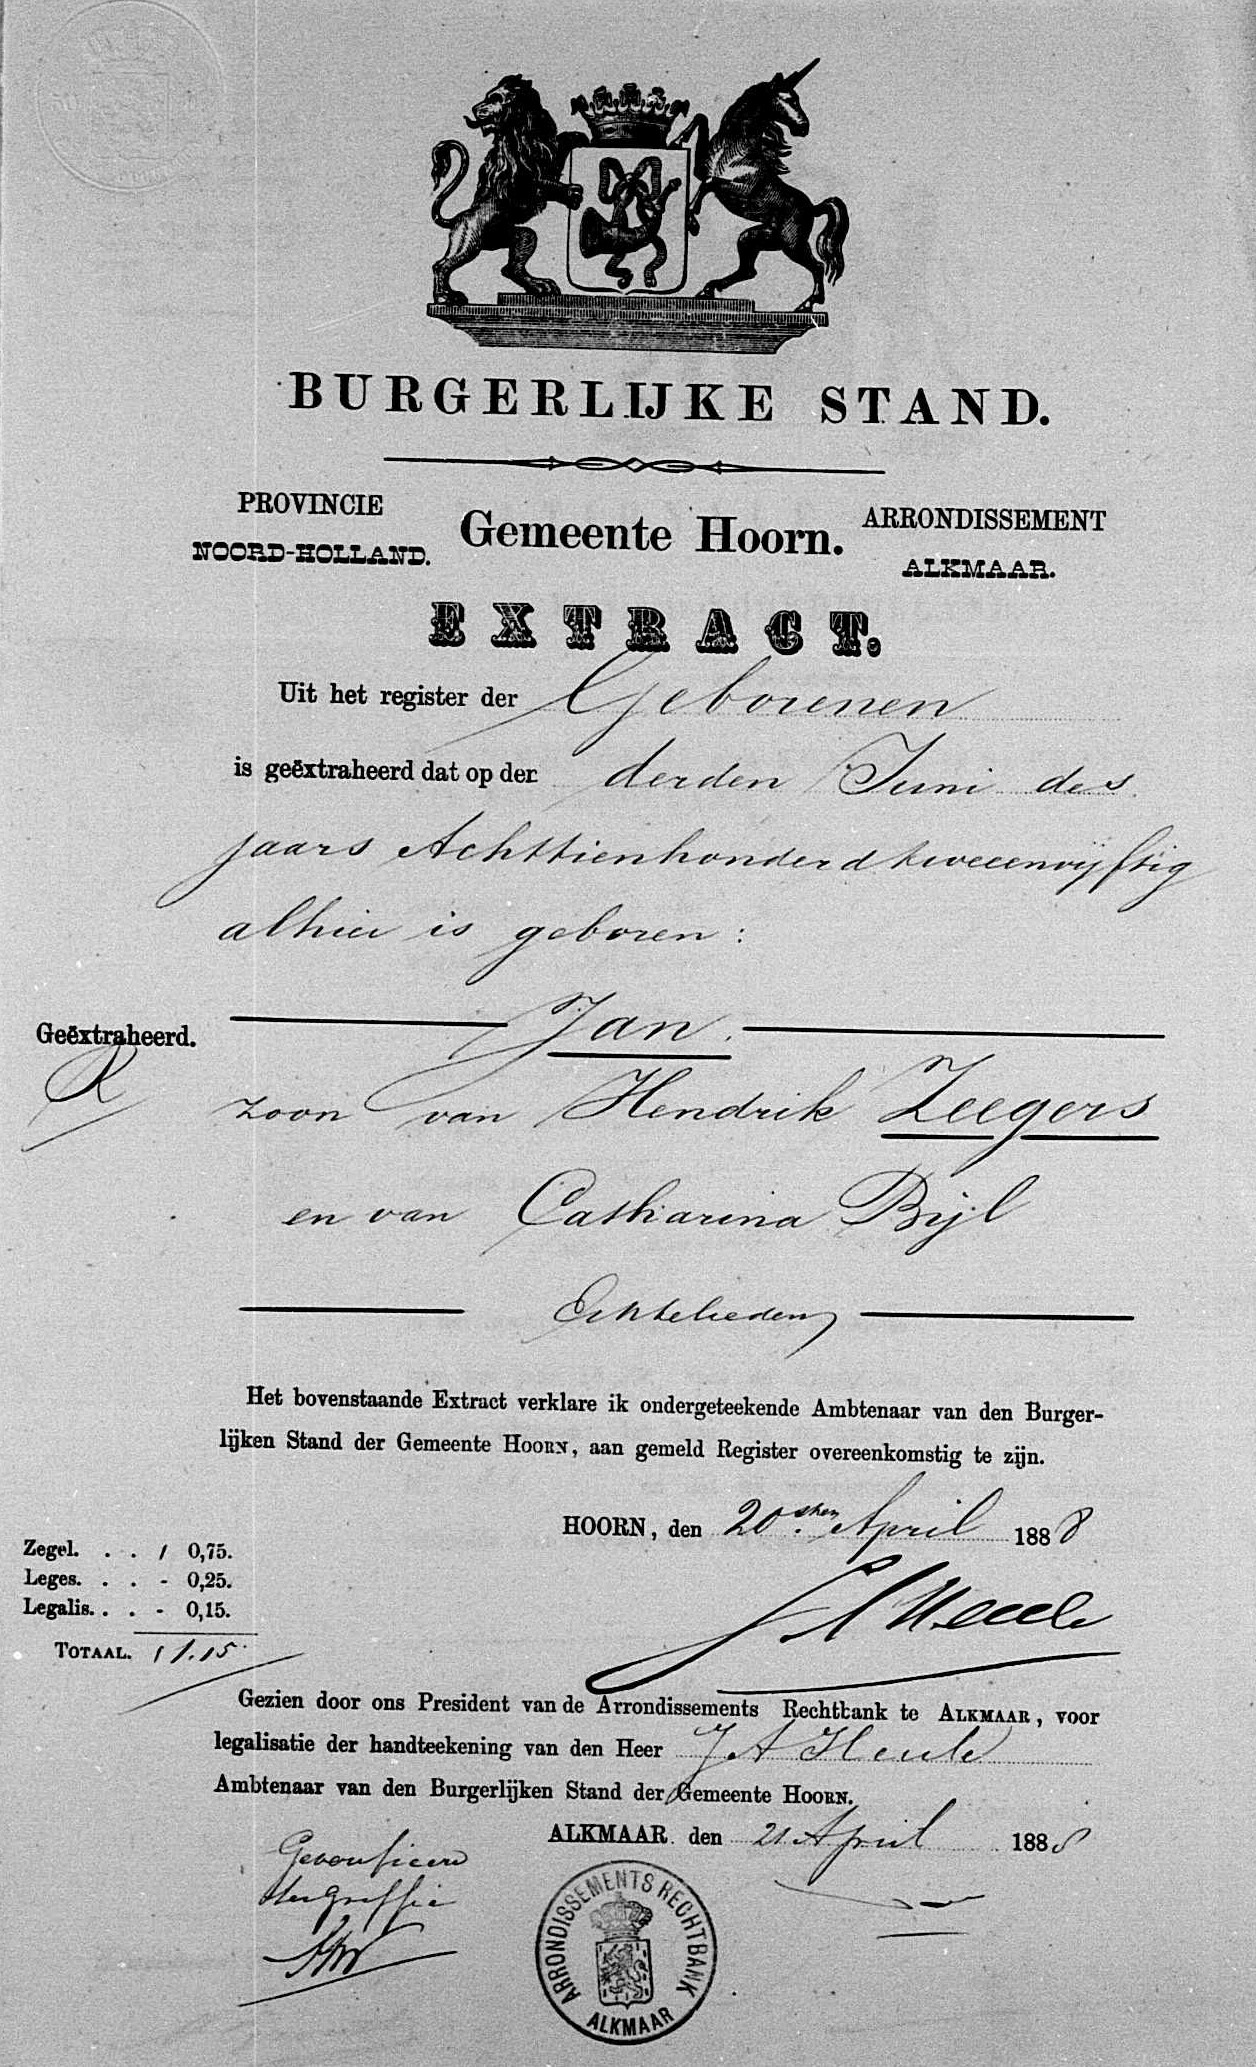 BURGERLIJKE STAND.
PROVINCIE
NOORD-HOLLAND.
Gemeente Hoorn.
ARRONDISSEMENT
ALKMAAR.
EXTRACT.
Uit het register der Geborenen
is geëxtraheerd dat op der derden Juni des
jaars Achttienhonderd tweeenvijftig
alhier is geboren:
Jan.
Geëxtraheerd.
zoon van Hendrik Zeegers
en van Catharina Bijl
Echtelieden
Het bovenstaande Extract verklare ik ondergeteekende Ambtenaar van den Burger-
lijken Stand der Gemeente HOORN, aan gemeld Register overeenkomstig te zijn.
HOORN, den 20sten April 1888
Zegel. . . f 0,75.
Leges. . . - 0,25.
Legalis. . . - 0,15.
TOTAAL. f 1.15
Gezien door ons President van de Arrondissements Rechtbank te ALKMAAR, voor
legalisatie der handteekening van den Heer
Ambtenaar van den Burgerlijken Stand der Gemeente HOORN.
ALKMAAR den 21 April 1888
Griffie
ARRONDISSEMENTS RECHTBANK
ALKMAAR